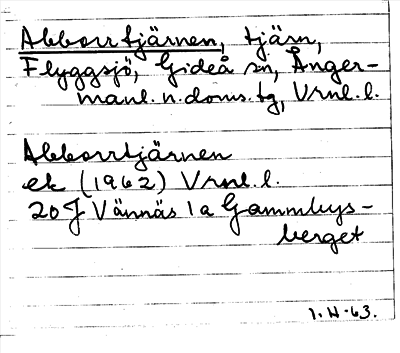 Abborrtjärnen, tjärn,
Flyggsjö, Gideå sn, Ånger-
manl. n. doms. tg, Vrnl. l.
Abborrtjärnen
ek (1962) Vrnl. l.
20 J Vännäs 1 a Gammbys-
berget
1. H -63.